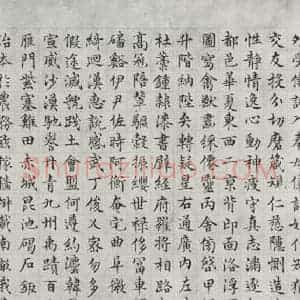 交友投分切磨箴規仁慈隱惻造
性靜情逸心動神疲守真志滿逐
都邑華夏東西二京背邙面洛浮
圖寫禽獸畫彩仙靈丙舍傍啓甲
升階納陛弁轉疑星右通廣內左
杜稾鍾隸漆書壁經府羅將相路
高冠陪輦驅轂振纓世祿侈富車
磻谿伊尹佐時阿衡奄宅曲阜微
綺迴漢惠說感武丁俊乂密勿多
假途滅虢踐土會盟何遵約法韓
宣威沙漠馳譽丹青九州禹跡百
雁門紫塞雞田赤城昆池碣石鉅
治本於農務茲稼穡俶載南畝我